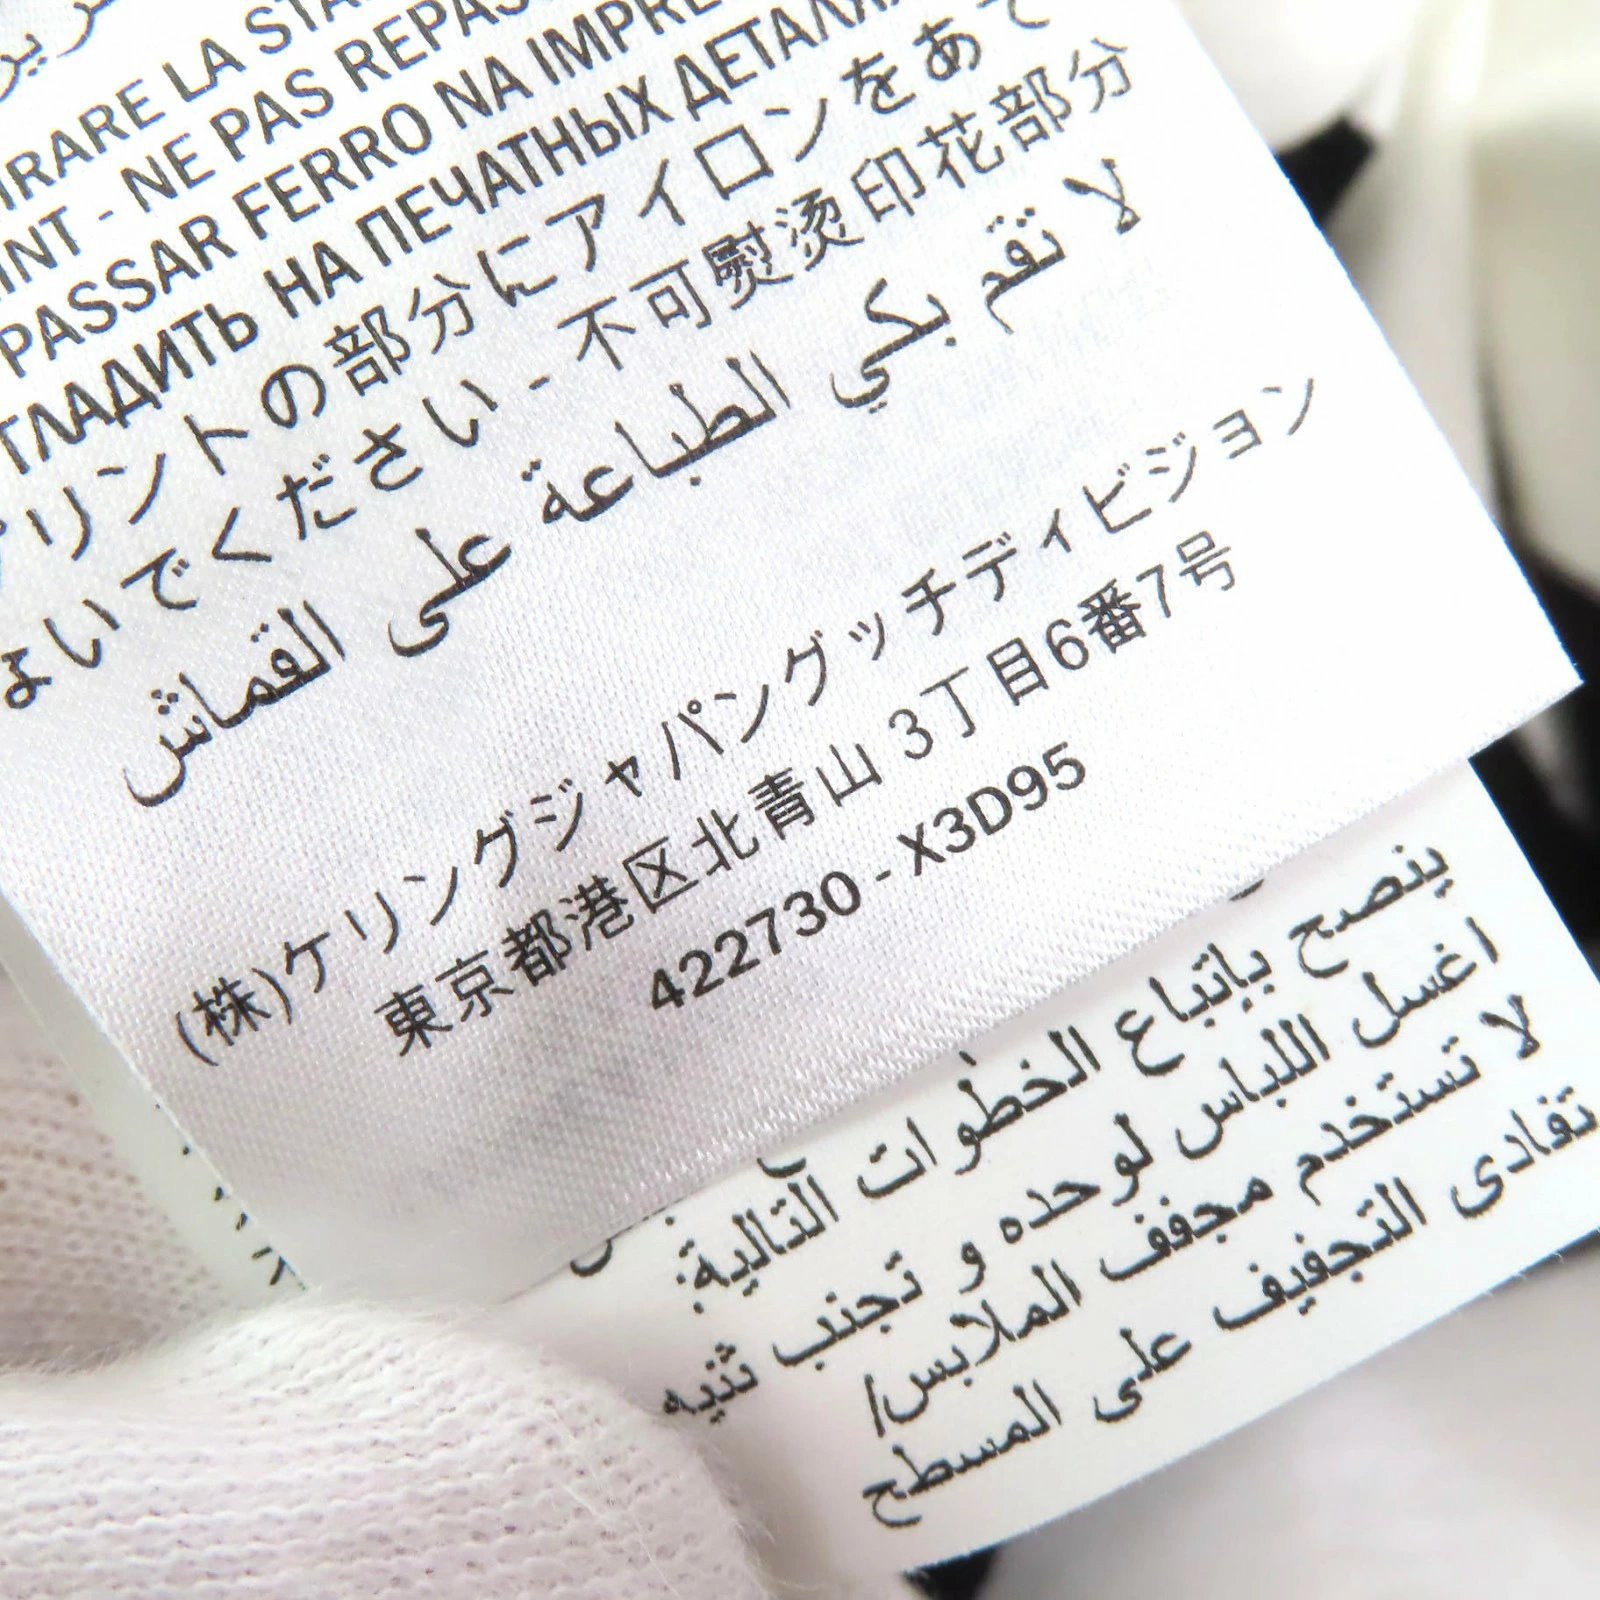 LA
- NE PAS
PASSAR FERRO NA
НА ПЕЧАТНЫХ
の部分にアイロンをあて
いでください - 不可熨烫印花部分
لا تقم بكي الطباعة على القماش
(株)ケリングジャパングッチディビジョン
東京都港区北青山 3丁目6番7号
422730 - X3D95
ينصح بإتباع الخطوات التالية:
اغسل اللباس لوحده و تجنب ثنيه
لا تستخدم مجفف الملابس/
تفادى التجفيف على المسطح